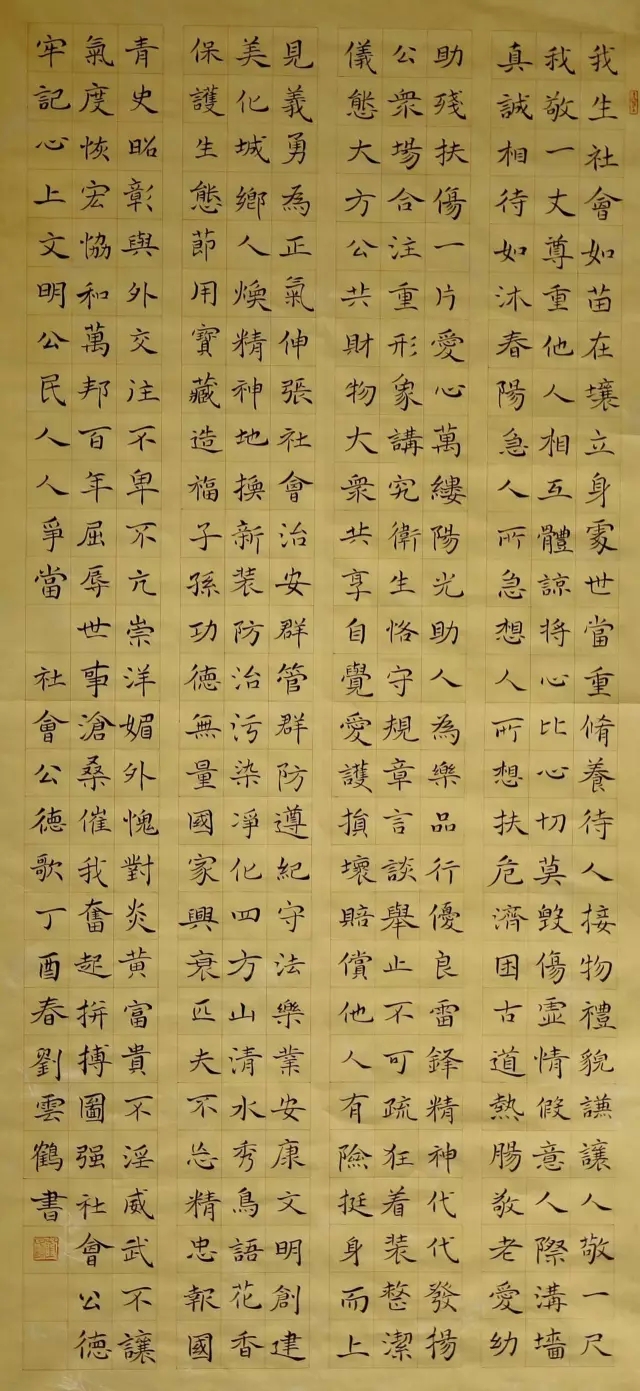 我生社會如苗在壤立身處世當重脩養待人接物禮貌謙讓人敬一尺
我敬一丈尊重他人相互體諒將心比心切莫毀傷虛情假意人際溝墻
真誠相待如沐春陽急人所急想人所想扶危濟困古道熱腸敬老愛幼
助殘扶傷一片愛心萬縷陽光助人為樂品行優良雷鋒精神代代發揚
公衆場合注重形象講究衛生恪守規章言談舉止不可疏狂着裝整潔
儀態大方公共財物大衆共享自覺愛護損壞賠償他人有險挺身而上
見義勇為正氣伸張社會治安群管群防遵紀守法樂業安康文明創建
美化城鄉人煥精神地換新装防治污染凈化四方山清水秀鳥語花香
保護生態節用寶藏造福子孫功德無量國家興衰匹夫不忘精忠報國
青史昭彰與外交注不卑不亢崇洋媚外愧對炎黃富貴不淫威武不讓
氣度恢宏協和萬邦百年屈辱世事滄桑催我奮起拚搏圖强社會公德
牢記心上文明公民人人爭當 社會公德歌丁酉春劉雲鶴書